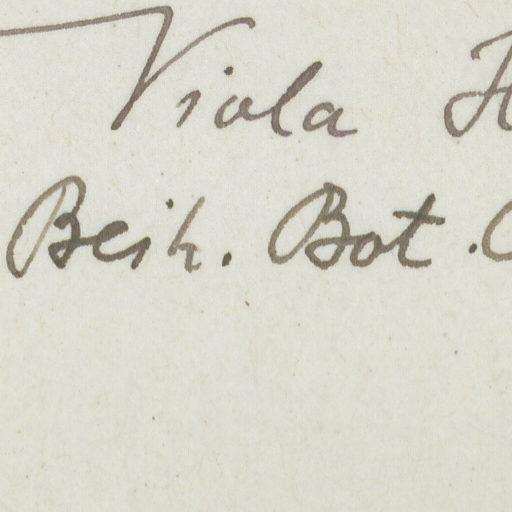 Viola H
Beih. Bot. C